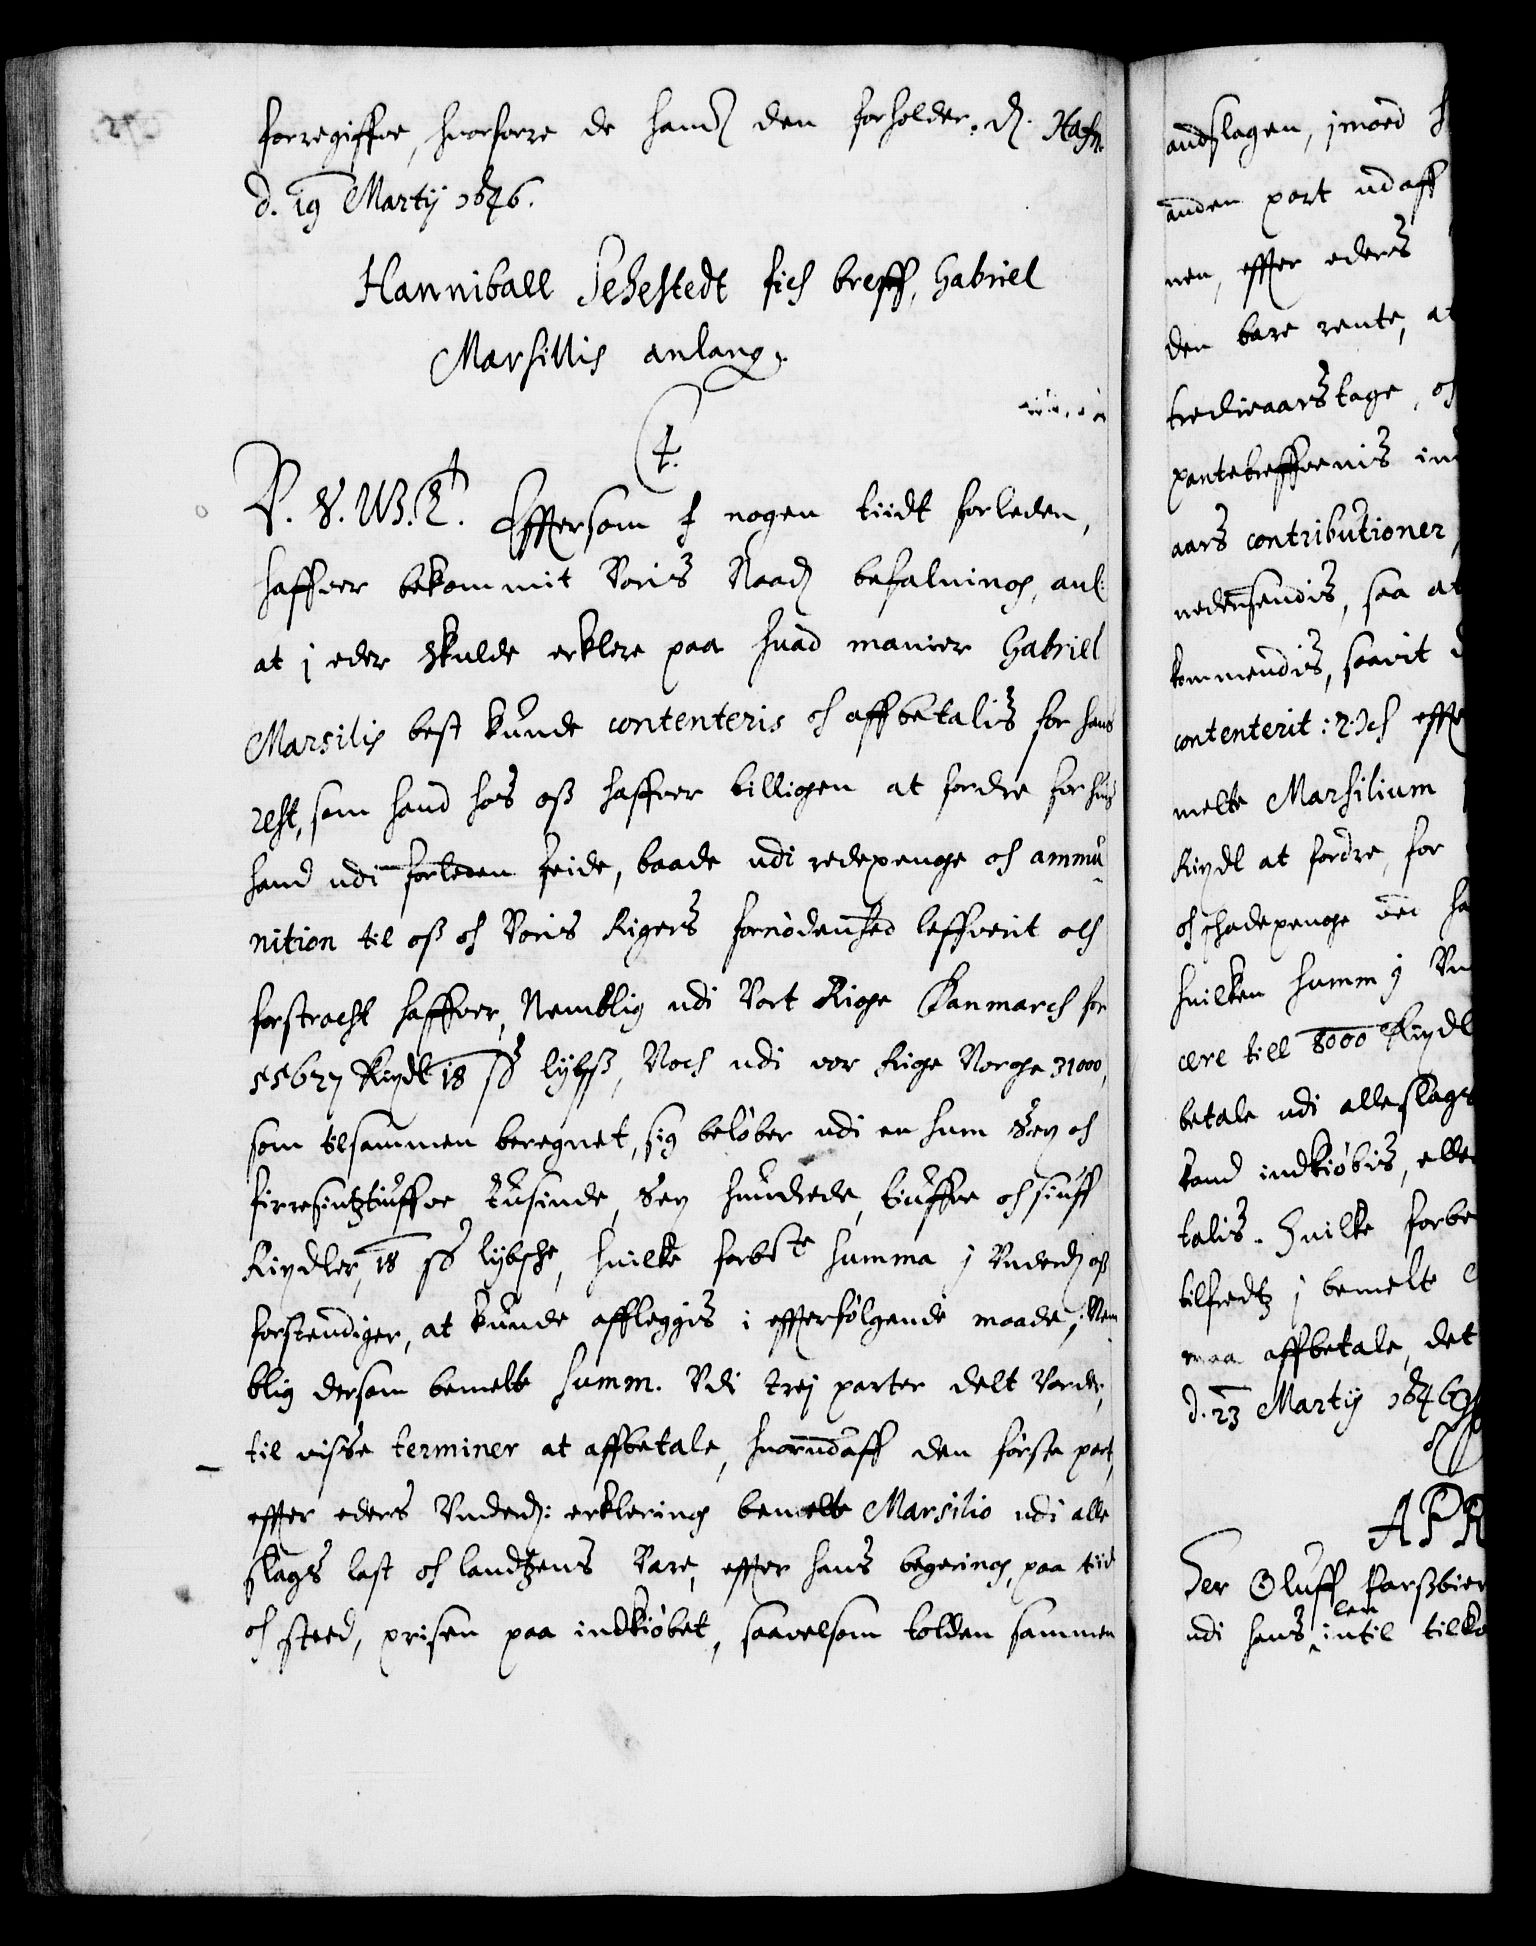 forregiffue, huorforre de hand den forholder. Hafn.
d. 19 Martij 1646.
Hanniball Sehestedt fich breff, Gabriel
Marsillis anlang.
4.
P. V. W. G. Effersom I nogen tiidt forleden,
haffuer bekommit Voris Naad befalning, anl:
at j eder skulde erklere paa huad manier Gabriel
Marsilis best kunde contenteris och affbetalis for hans
rest, som hand hos oß haffuer billigen at fordre for huis
hand udi forleden feide, baade udi redepenge och ammu
nition til oß och Voris Rigers fornødenhed leffuerit och
forstracht haffuer, Nemblig udi Vort Rige Danmarch for
55627 Rixdl 18 sß lybsß, Noch udi vor Rige Norge 31000,
som tilsammen beregnet, sig beløber udi en sum Sex och
firresintztiuffue tusinde, Sex hundrede, tiuffue och siuff
Rixdler, 18 sß lybsche, huilke forbte summa j Underd oß
forstendiger, at kunde affleggis i effterfølgende maade, Nem
blig dersom bemelte summ. Vdi trej parter delt Vorder,
til visse terminer at affbetale, huorudaff den første part,
effter eders Underd: erklering bemelte Marsilio udi alle
slags last och landtzens Vare, effter hans begering, paa tiid
och sted, prisen paa indkiøbet, saauelsom tolden sammen
andslagen, jmoed
anden part udaff
nen, effter eders
den bare rente, at
tredieaarstage, och
panteleffuenis
aars contributioner,
nedersendis, saa at
kommendis, sauit
contenterit: Och
melte Marsilium
Rixdl at fordre, for
och schadepenge
huilken summ j
cere till 8000 Rixdl
betale udi alleslags
land indkiøbis,
talis. Huilke
tilfredtz j bemelte
maa affbetale, det
d. 23 Martij 1646
APR
Her Oluff
udi hans len intil